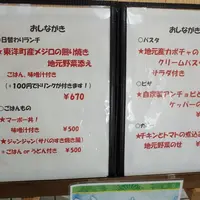 おしながき
○日替わりランチ
★東洋町産メジロの照り焼き
地元野菜添え
ごはん、味噌汁付き
(+100円でドリンクが付きます!)
¥670
○ごはんもの
★マーボー丼!
味噌汁付き ¥500
★ジャンジャン(牛バラのすき焼き)
+ごはん or うどん付き ¥500
おしながき
○パスタ
★地元産カボチャの
クリームパスタ
サラダ付き
○ピザ
★自家製アンチョビと
ケッパーの
★チキンとトマトの煮込み
地元野菜のせ